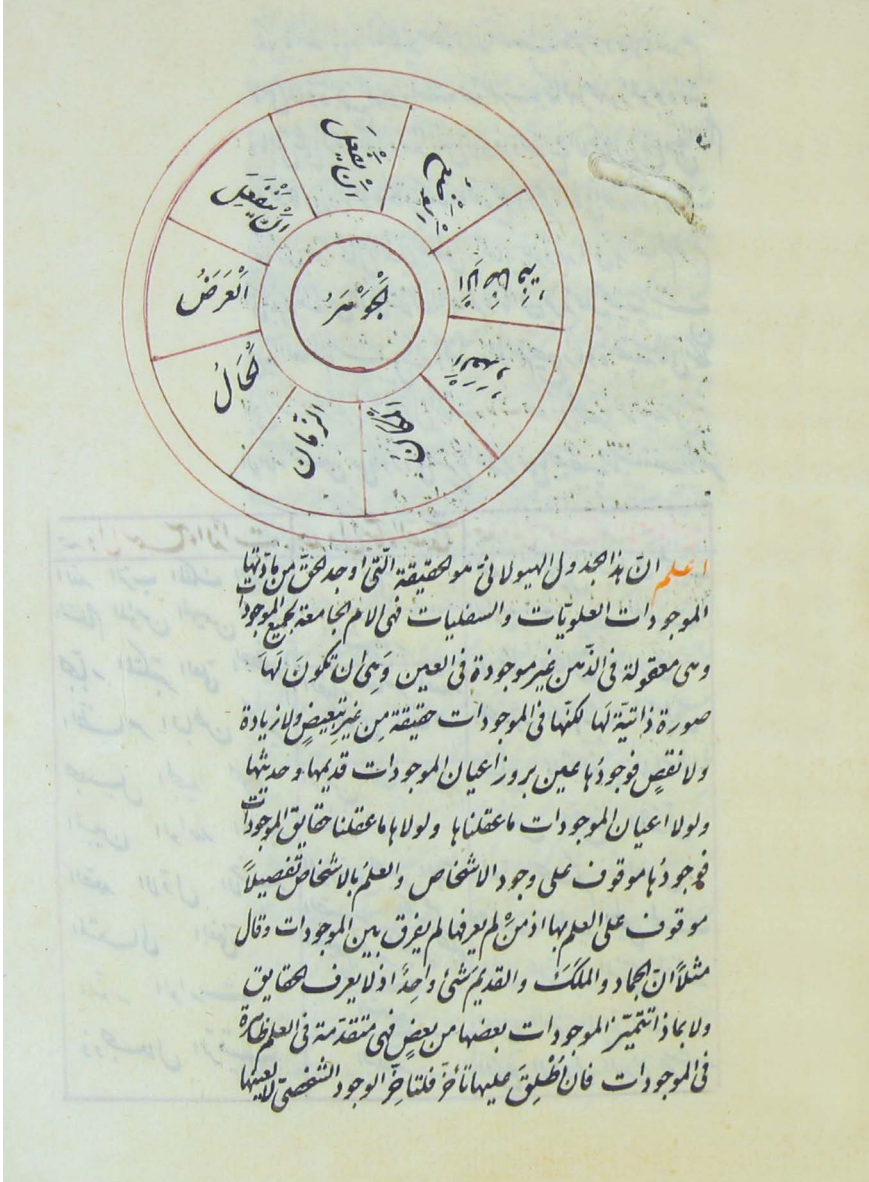 الجَوْهَرُ
اَنْ يَفْعَلَ
اَنْ يَنْفَعِلَ
اَلْعَرَضُ
الْحَالُ
الزَّمَانُ
المكان
العدد
الاضافة
الوضع
اعلم انّ هذا الجدول الهيولانى هو الحقيقة الّتى اوجد الحقّ من مادّتها
الموجودات العلويّات والسفليات فهى الام الجامعة لجميع الموجودات
وهى معقولة فى الذّهن غير موجودة فى العين وَهِىَ ان تكونَ لَهَا
صورة ذاتيّة لَهَا لكنّها فى الموجودات حقيقة مِن غيرِ تبعيضٍ ولا زيادة
ولا نقصٍ فوجودُها عين بروز اعيان الموجودات قديمها وحديثها
ولولا اعيان الموجودات ما عقلناها ولولاها ما عقلنا حقايق الموجودات
فوجودُها موقوف على وجود الاشخاص والعلمُ بالاشخاص تفصيلاً
موقوف على العلم بها اذ مَنْ لم يعرفها لم يفرق بين الموجودات وقال
مثلاً انّ الجماد والملَكَ والقديمَ شئ واحِدٌ اذ لا يعرف الحقايق
ولا بماذا تتميّز الموجودات بعضها من بعضٍ فهى متقدّمة فى العلم ظاهرة
فى الموجودات فان اُطْلِقَ عليها تأخّر فلتاخّر الوجود الشخصىّ لا لعينها